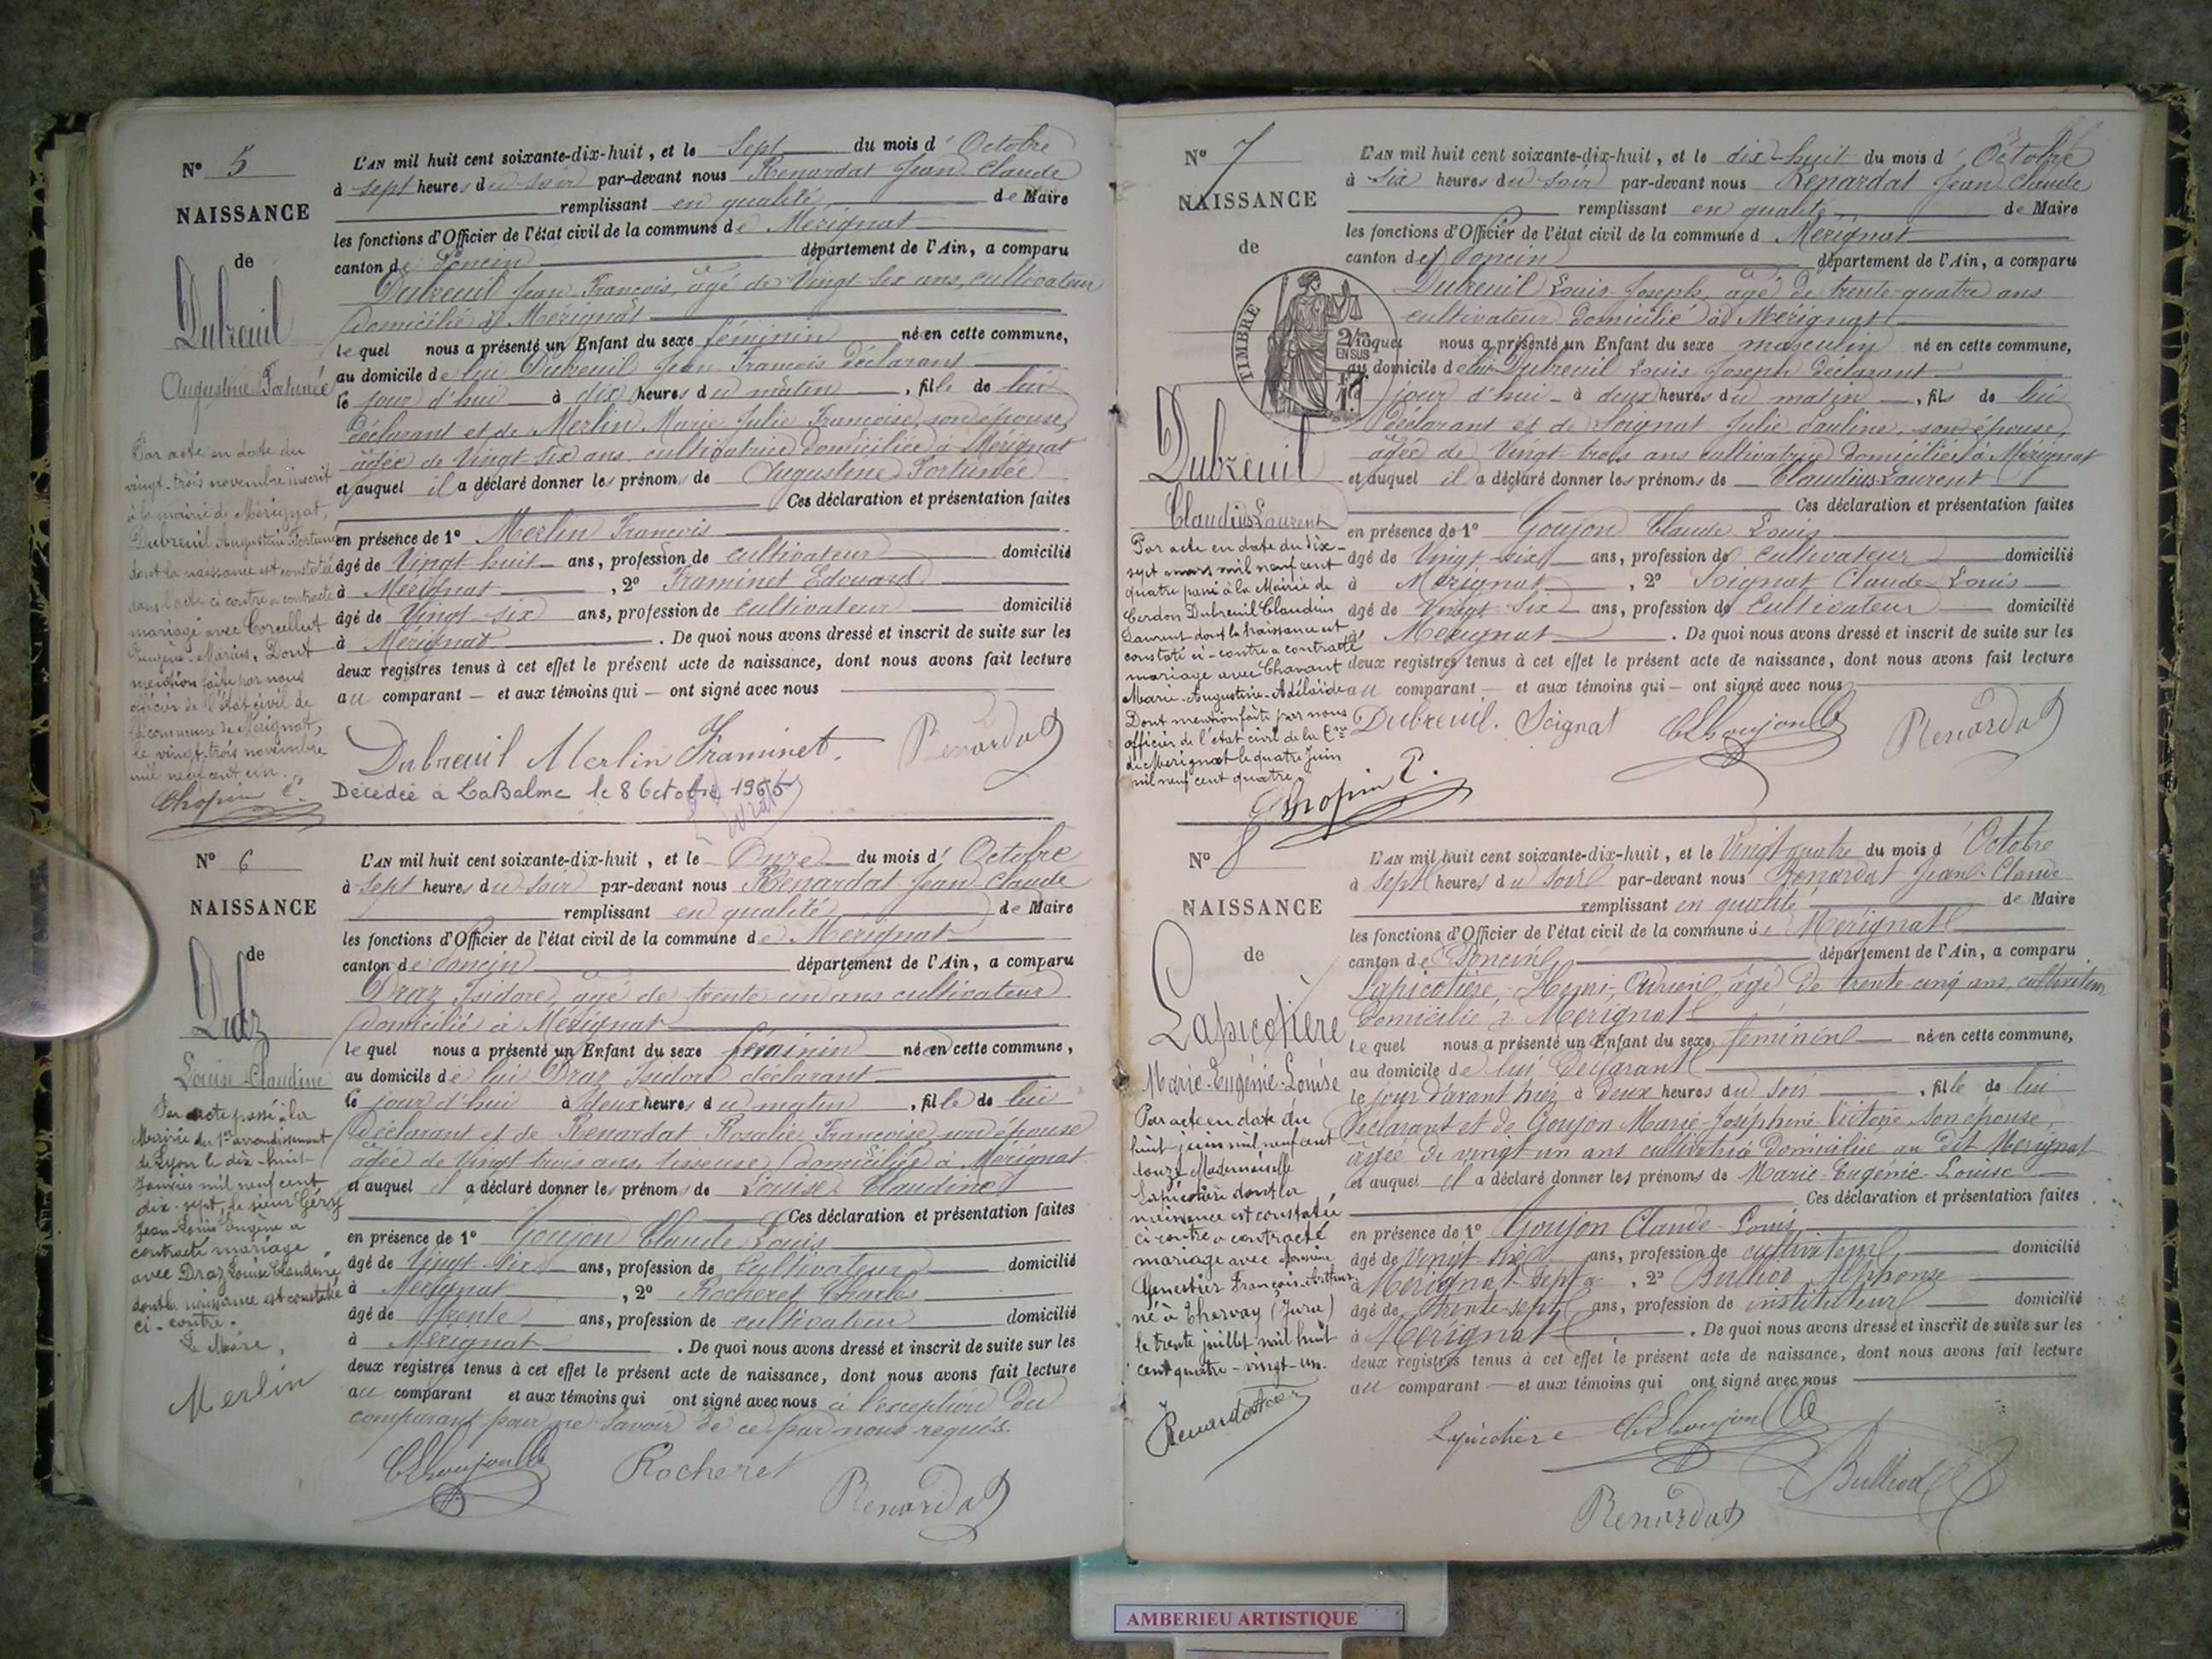 N° 5
NAISSANCE
de
Dubreuil
Augustine Fortunée
Par acte en date du
vingt-trois novembre inscrit
à la mairie de Mérignat,
Dubreuil Augustine Fortunée
dont la naissance est constatée
dans l'acte ci contre a contracté
mariage avec Corcellut
Eugène-Marius. Dont
mention faite par nous
officier de l'état civil de
la commune de Mérignat,
le vingt-trois novembre
mil neuf cent un.
Chopin C.
L'AN mil huit cent soixante-dix-huit, et le Sept du mois d'Octobre
à sept heures du soir par-devant nous Renardat Jean Claude
remplissant en qualité de Maire
les fonctions d'Officier de l'état civil de la commune de Mérignat
canton de Poncin département de l'Ain, a comparu
Dubreuil Jean François, âgé de Vingt-six ans, cultivateur
domicilié à Mérignat
lequel nous a présenté un Enfant du sexe féminin né en cette commune,
au domicile de lui Dubreuil Jean François déclarant
le jour d'hui à dix heures du matin, fille de lui
déclarant et de Merlin Marie Julie Françoise, son épouse,
âgée de Vingt-six ans cultivatrice domiciliée à Mérignat
et auquel il a déclaré donner les prénoms de Augustine Fortunée
Ces déclaration et présentation faites
en présence de 1° Merlin François
âgé de Vingt-huit ans, profession de cultivateur domicilié
à Mérignat, 2° Framinet Edouard
âgé de Vingt-six ans, profession de cultivateur domicilié
à Mérignat. De quoi nous avons dressé et inscrit de suite sur les
deux registres tenus à cet effet le présent acte de naissance, dont nous avons fait lecture
au comparant — et aux témoins qui — ont signé avec nous
Dubreuil Merlin Framinet. Renardat
Décédée à La Balme le 8 Octobre 1965
N° 6
NAISSANCE
de
Draz
Louise Claudine
Par acte passé à la
Mairie du 1er arrondissement
de Lyon le dix-huit
Janvier mil neuf cent
dix-sept, le sieur Géry
Jean-Louis Eugène a
contracté mariage
avec Draz Louise Claudine
dont la naissance est constatée
ci-contre.
Le Maire,
Merlin
L'AN mil huit cent soixante-dix-huit, et le Onze du mois d'Octobre
à sept heures du soir par-devant nous Renardat Jean Claude
remplissant en qualité de Maire
les fonctions d'Officier de l'état civil de la commune de Mérignat
canton de Poncin département de l'Ain, a comparu
Draz Isidore, âgé de trente un ans cultivateur
domicilié à Mérignat
lequel nous a présenté un Enfant du sexe féminin né en cette commune,
au domicile de lui Draz Isidore déclarant
le jour d'hui à deux heures du matin, fille de lui
déclarant et de Renardat Rosalie Françoise, son épouse
âgée de Vingt trois ans, tisseuse domiciliée à Mérignat
et auquel il a déclaré donner les prénoms de Louise Claudine
Ces déclaration et présentation faites
en présence de 1° Goujon Claude Louis
âgé de Vingt six ans, profession de Cultivateur domicilié
à Mérignat, 2° Rocheret Charles
âgé de trente ans, profession de cultivateur domicilié
à Mérignat. De quoi nous avons dressé et inscrit de suite sur les
deux registres tenus à cet effet le présent acte de naissance, dont nous avons fait lecture
au comparant et aux témoins qui ont signé avec nous à l'exception du
comparant pour ne savoir de ce par nous requis.
CLGoujon Rocheret Renardat
N° 7
NAISSANCE
de
TIMBRE
2/10es
EN SUS
Dubreuil
Claudius Laurent
Par acte en date du dix-
sept mars mil neuf cent
quatre passé à la Mairie de
Cerdon Dubreuil Claudius
Laurent dont la naissance est
constaté ci-contre a contracté
mariage avec Chavant
Marie-Augustine-Adélaïde
Dont mention faite par nous
officier de l'état civil de la Cne
de Mérignat le quatre Juin
mil neuf cent quatre
Chopin C.
L'AN mil huit cent soixante-dix-huit, et le dix-huit du mois d'Octobre
à six heures du soir par-devant nous Renardat Jean Claude
remplissant en qualité de Maire
les fonctions d'Officier de l'état civil de la commune d Mérignat
canton de Poncin département de l'Ain, a comparu
Dubreuil Louis-Joseph, âgé de trente-quatre ans
cultivateur domicilié à Mérignat
lequel nous a présenté un Enfant du sexe masculin né en cette commune,
au domicile de lui Dubreuil Louis Joseph déclarant
jour d'hui à deux heures du matin, fils de lui
déclarant et de Soignat Julie Pauline, son épouse,
âgée de Vingt-trois ans cultivatrice domiciliée à Mérignat
et auquel il a déclaré donner les prénoms de Claudius Laurent
Ces déclaration et présentation faites
en présence de 1° Goujon Claude Louis
âgé de Vingt six ans, profession de Cultivateur domicilié
à Mérignat, 2° Soignat Claude Louis
âgé de Vingt six ans, profession de Cultivateur domicilié
à Mérignat. De quoi nous avons dressé et inscrit de suite sur les
deux registres tenus à cet effet le présent acte de naissance, dont nous avons fait lecture
au comparant — et aux témoins qui — ont signé avec nous
Dubreuil. Soignat CLGoujon Renardat
N° 8
NAISSANCE
de
Lapicotière
Marie-Eugénie-Louise
Par acte en date du
huit juin mil neuf cent
douze Mademoiselle
Lapicotière dont la
naissance est constatée
ci contre a contracté
mariage avec
Genestier François-Arthur
né à Thervay (Jura)
le trente juillet mil huit
cent quatre-vingt-un.
L'AN mil huit cent soixante-dix-huit, et le Vingt-quatre du mois d'Octobre
à Sept heures du soir par-devant nous Renardat Jean-Claude
remplissant en qualité de Maire
les fonctions d'Officier de l'état civil de la commune de Mérignat
canton de Poncin département de l'Ain, a comparu
Lapicotière, Henri, âgé de trente-cinq ans, cultivateur
domicilié à Mérignat
lequel nous a présenté un Enfant du sexe féminin né en cette commune,
au domicile de lui déclarant
le jour d'avant hier à deux heures du soir, fille de lui
déclarant et de Goujon Marie-Joséphine-Victoire, son épouse,
âgée de vingt-un ans cultivatrice domiciliée au dit Mérignat
et auquel il a déclaré donner les prénoms de Marie-Eugénie-Louise
Ces déclaration et présentation faites
en présence de 1° Goujon Claude-Louis
âgé de vingt six ans, profession de cultivateur domicilié
à Mérignat, 2° Bulliod Alphonse
âgé de trente-sept ans, profession de instituteur domicilié
à Mérignat. De quoi nous avons dressé et inscrit de suite sur les
deux registres tenus à cet effet le présent acte de naissance, dont nous avons fait lecture
au comparant — et aux témoins qui ont signé avec nous
Lapicotière CLGoujon
Bulliod
Renardat
AMBERIEU ARTISTIQUE